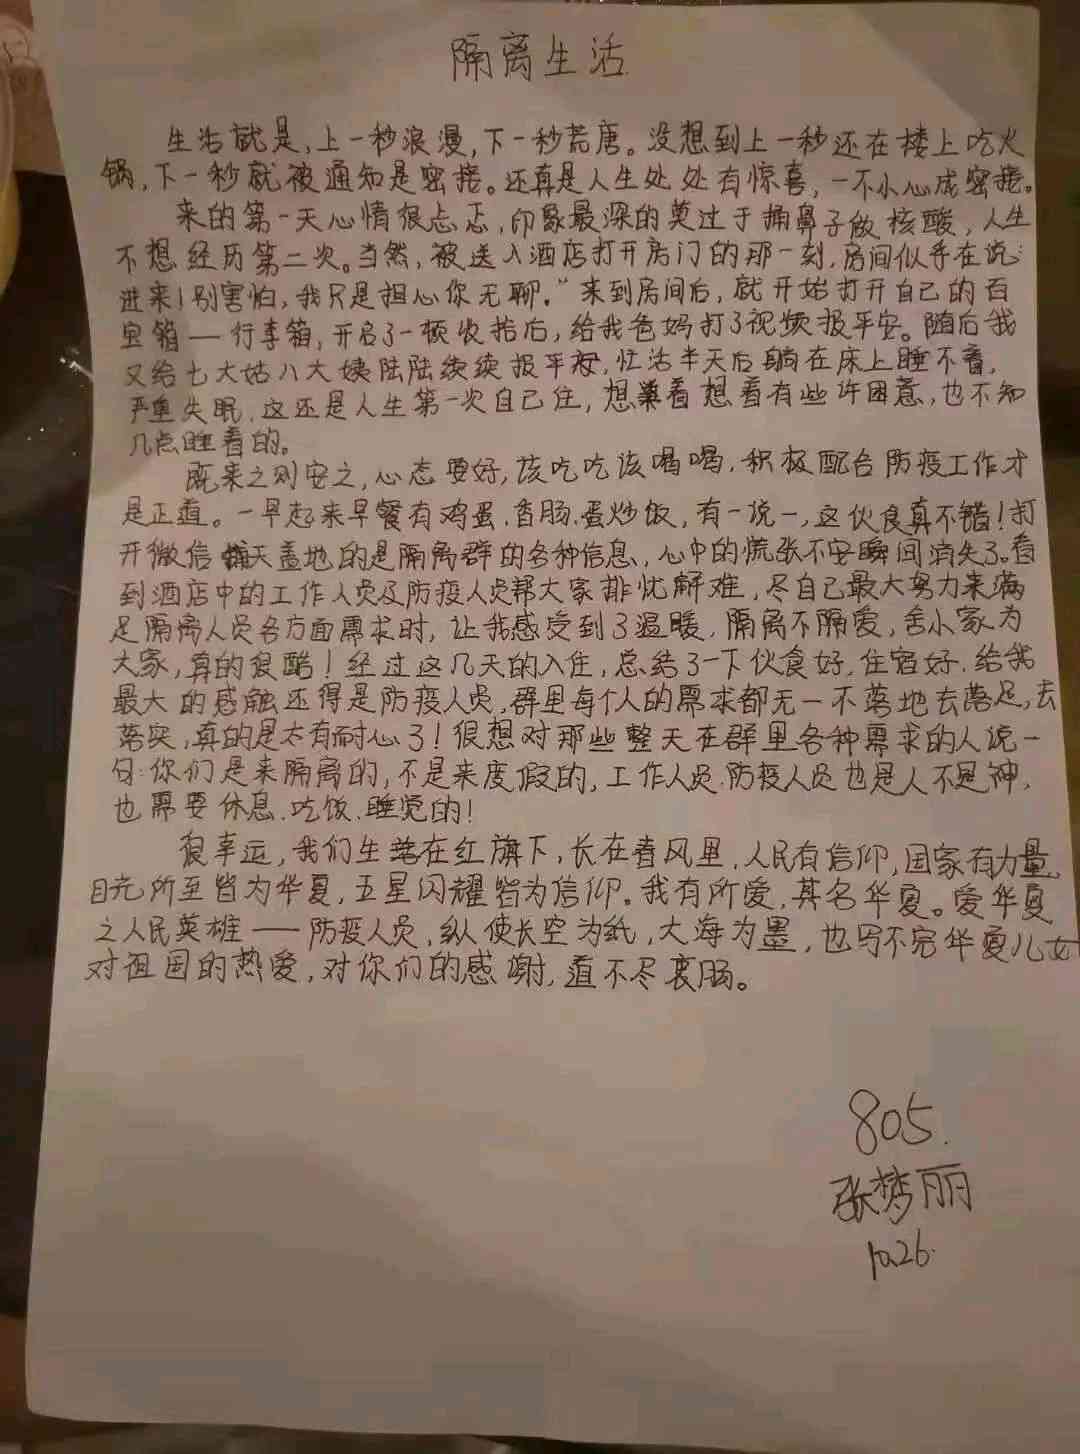 隔离生活
生活就是,上一秒浪漫,下一秒荒唐。没想到上一秒还在楼上吃火
锅,下一秒就被通知是密接。还真是人生处处有惊喜,一不小心成密接。
来的第一天心情很忐忑,印象最深的莫过于捅鼻子做核酸,人生
不想经历第二次。当然,被送入酒店打开房门的那一刻,房间似乎在说:
进来!别害怕,我只是担心你无聊。”来到房间后,就开始打开自己的百
宝箱——行李箱,开启了一顿收拾后,给我爸妈打了视频报平安。随后我
又给七大姑八大姨陆陆续续报平安,忙活半天后躺在床上睡不着,
严重失眠,这还是人生第一次自己住,想着想着有些许困意,也不知
几点睡着的。
既来之则安之,心态要好,该吃吃该喝喝,积极配合防疫工作才
是正道。一早起来早餐有鸡蛋.香肠.蛋炒饭,有一说一,这伙食真不错!打
开微信铺天盖地的是隔离群的各种信息,心中的慌张不安瞬间消失了。看
到酒店中的工作人员及防疫人员帮大家排忧解难,尽自己最大努力来满
足隔离人员各方面需求时,让我感受到了温暖,隔离不隔爱,舍小家为
大家,真的很酷!经过这几天的入住,总结了一下伙食好,住宿好.给我
最大的感触还得是防疫人员,群里每个人的需求都无一不落地去落足,去
落实,真的是太有耐心了!很想对那些整天在群里各种需求的人说一
句:你们是来隔离的,不是来度假的,工作人员.防疫人员也是人不是神,
也需要休息.吃饭.睡觉的!
很幸运,我们生在红旗下,长在春风里,人民有信仰,国家有力量,
目光所至皆为华夏,五星闪耀皆为信仰。我有所爱,其名华夏。爱华夏
之人民英雄——防疫人员,纵使长空为纸,大海为墨,也写不完华夏儿女
对祖国的热爱,对你们的感谢,道不尽衷肠。
805.
张梦丽
10.26.